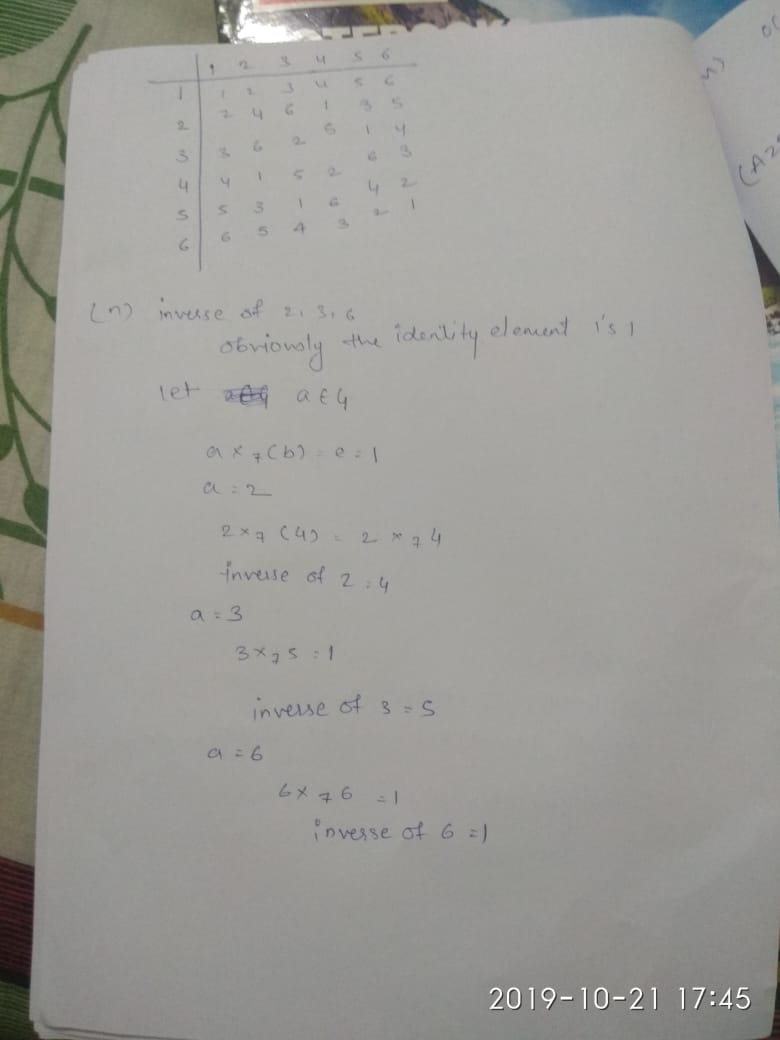 1 2 3 4 5 6
1 1 2 3 4 5 6
2 2 4 6 1 3 5
3 3 6 2 5 1 4
4 4 1 5 2 6 3
5 5 3 1 6 4 2
6 6 5 4 3 2 1
(n) inverse of 2, 3, 6
obviously the identity element is 1
let a ∈ G
a ×7 (b) = e = 1
a = 2
2 ×7 (4) = 2 ×7 4
inverse of 2 = 4
a = 3
3 ×7 5 = 1
inverse of 3 = 5
a = 6
6 ×7 6 = 1
inverse of 6 = 1
2019-10-21 17:45